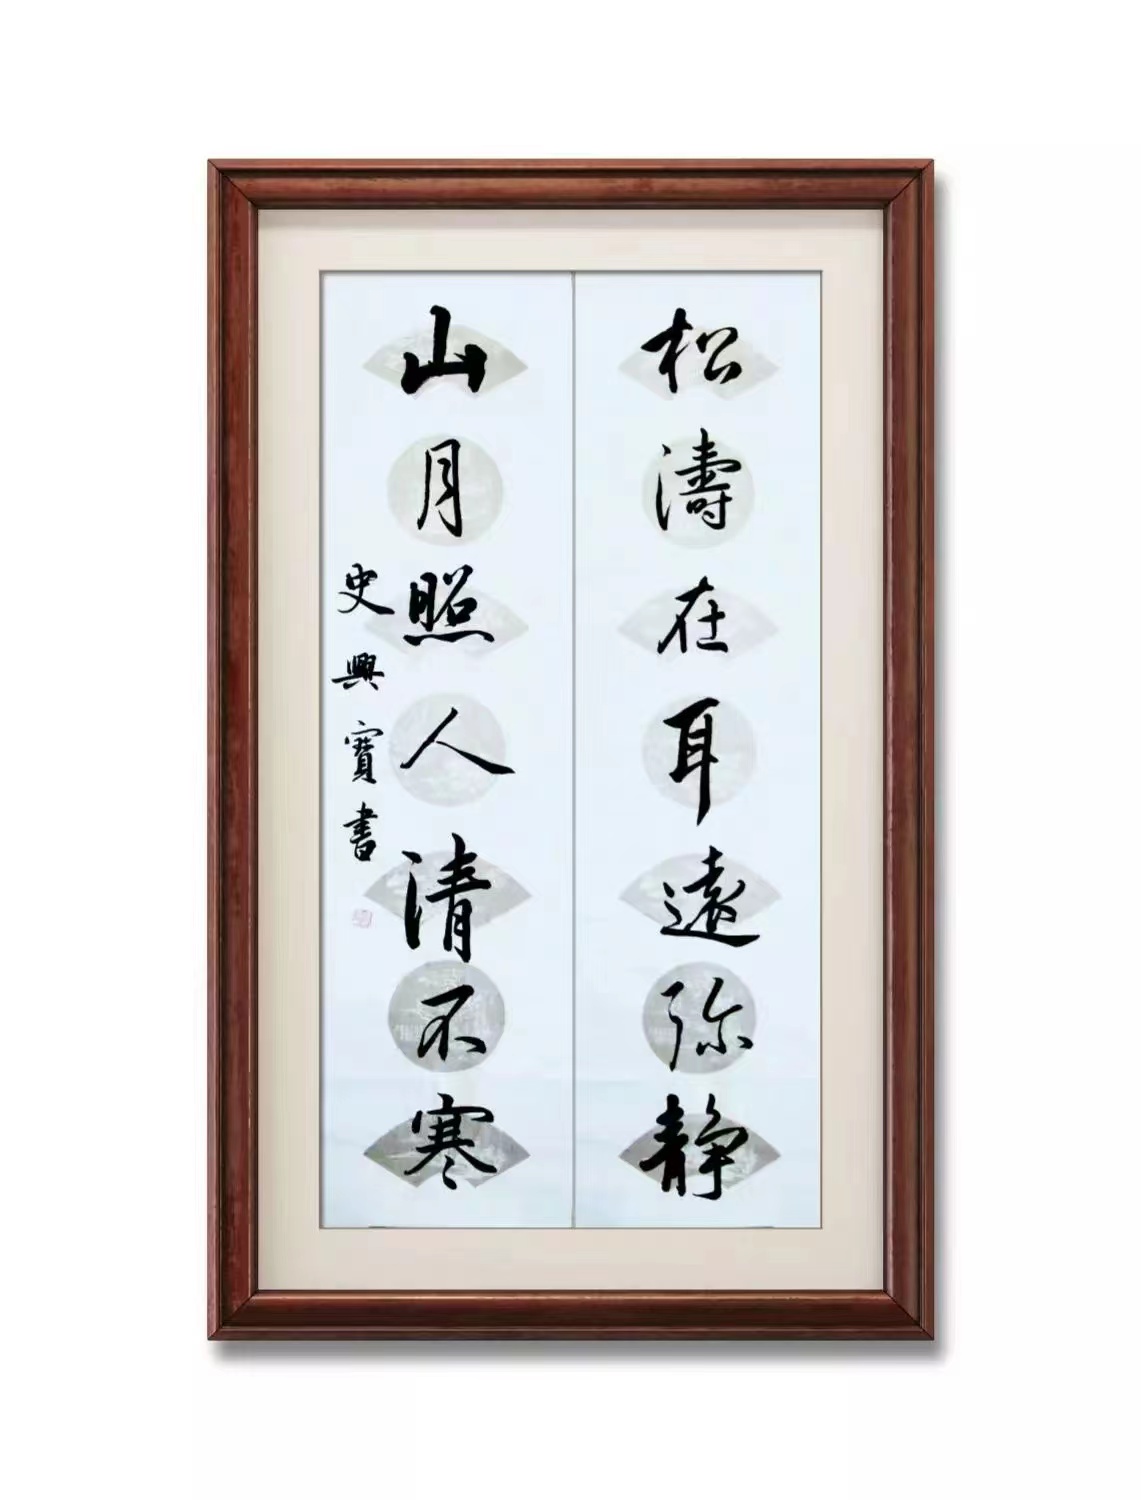 松濤在耳遠弥静
山月照人清不寒
史興寶書